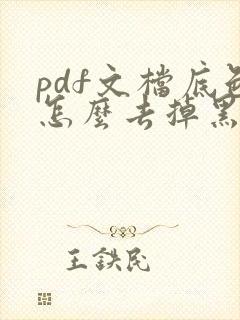 pdf文檔底色
怎麼去掉黑
王鉄民